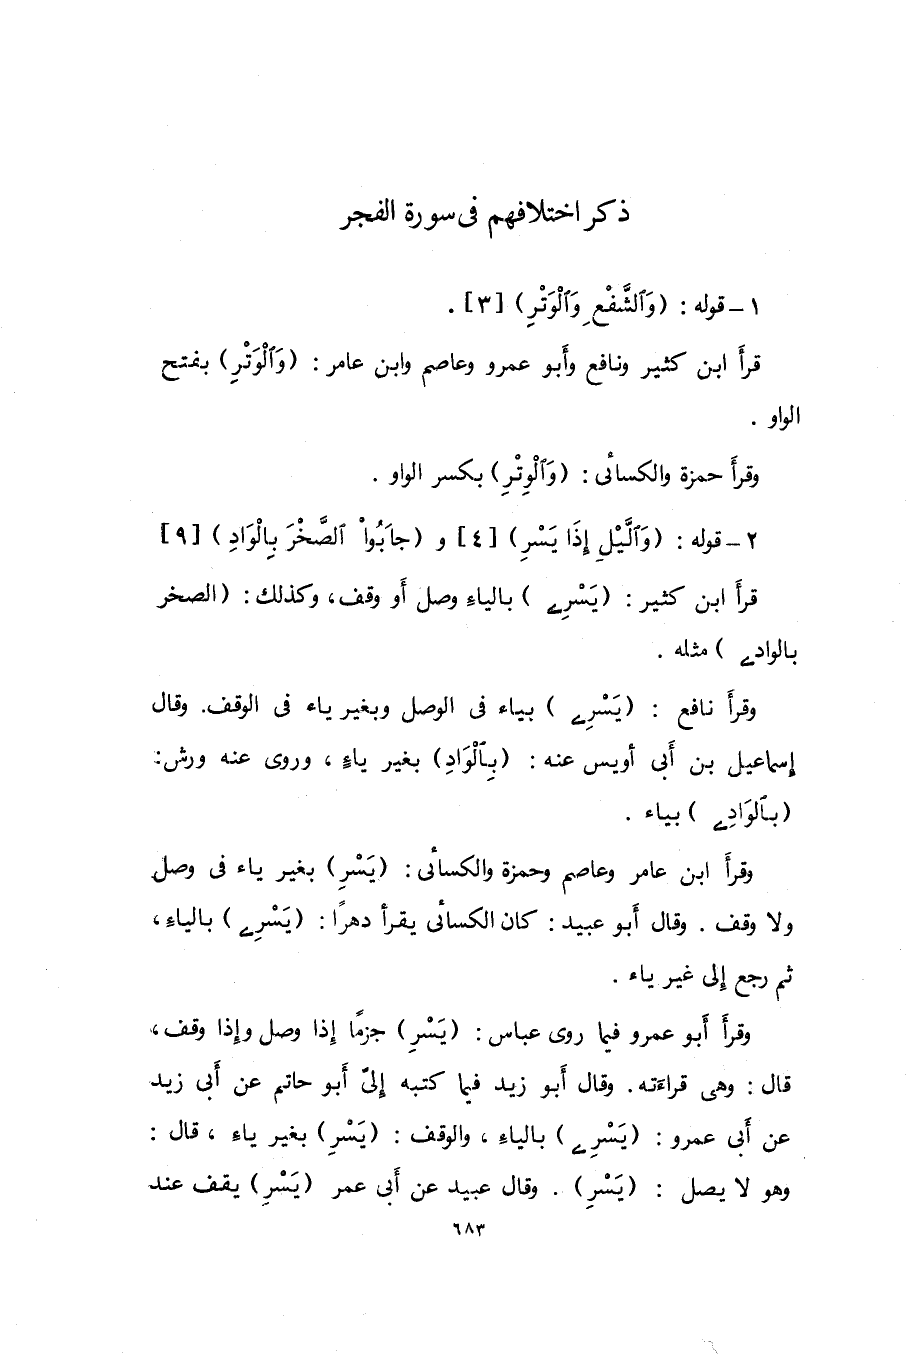 ذكر اختلافهم فى سورة الفجر
١ – قوله : (وَٱلشَّفْعِ وَٱلْوَتْرِ) [٣] .
قرأ ابن كثير ونافع وأبو عمرو وعاصم وابن عامر : (وَٱلْوَتْرِ) بفتح
الواو .
وقرأ حمزة والكسائى : (وَٱلْوِتْرِ) بكسر الواو .
٢ – قوله : (وَٱلَّيْلِ إِذَا يَسْرِ) [٤] و (جابُواْ ٱلصَّخْرَ بِالْوَادِ) [٩]
قرأ ابن كثير : (يَسْرِے ) بالياءِ وصل أو وقف، وكذلك : (الصخر
بالوادے ) مثله .
وقرأ نافع : (يَسْرِے ) بياء فى الوصل وبغير ياء فى الوقف. وقال
إسماعيل بن أبى أويس عنه : (بِٱلْوَادِ) بغير ياءٍ ، وروى عنه ورش:
(بٱلوَادِے ) بياء .
وقرأ ابن عامر وعاصم وحمزة والكسائى : (يَسْرِ) بغير ياء فى وصل
ولا وقف . وقال أبو عبيد : كان الكسائى يقرأ دهرًا : (يَسْرِے ) بالياءِ ،
ثم رجع إلى غير ياء .
وقرأ أبو عمرو فيما روى عباس : (يَسْرِ) جزمًا إذا وصل وإذا وقف،
قال : وهى قراءته. وقال أبو زيد فيما كتبه إلىّ أبو حاتم عن أبى زيد
عن أبى عمرو : (يَسْرِے ) بالياءِ ، والوقف : (يَسْرِ) بغير ياءِ ، قال :
وهو لا يصل : (يَسْرِ) . وقال عبيد عن أبى عمر (يَسْرِ) يقف عند
٦٨٣